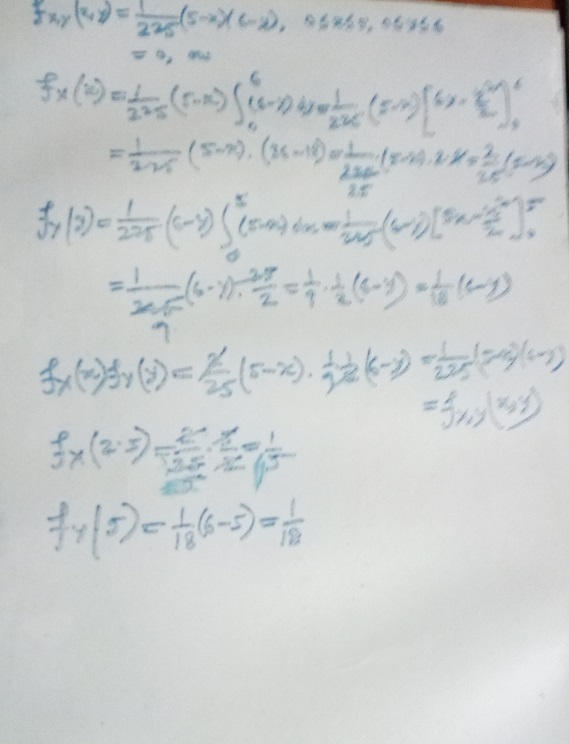 f_{X,Y}(x,y) = 1/225 (5-x)(6-y), 0≤x≤5, 0≤y≤6
= 0, ow
f_X(x) = 1/225 (5-x) ∫_0^6 (6-y) dy = 1/225 (5-x) [6y - y²/2]_0^6
= 1/225 (5-x) · (36-18) = 1/25 (5-x) · 2 = 2/25 (5-x)
f_Y(y) = 1/225 (6-y) ∫_0^5 (5-x) dx = 1/225 (6-y) [5x - x²/2]_0^5
= 1/225 (6-y) · 25/2 = 1/9 · 1/2 (6-y) = 1/18 (6-y)
9
f_X(x) f_Y(y) = 2/25 (5-x) · 1/9 · 1/2 (6-y) = 1/225 (5-x)(6-y)
= f_{X,Y}(x,y)
f_X(2.5) = 2/25 · 5/2 = 1/5
f_Y(5) = 1/18 (6-5) = 1/18